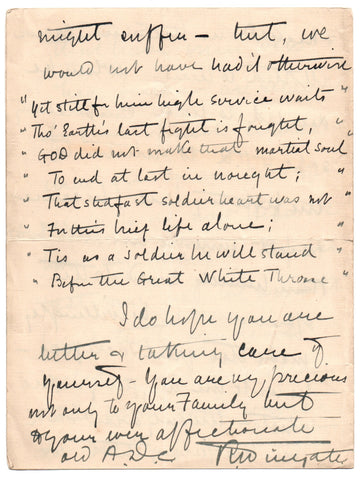 might suffer – but, we
would not have had it otherwise
"Yet still for him high service waits "
" Tho' Earth's last fight is fought, "
" GOD did not make that martial soul "
" To end at last in nought; "
" That stedfast soldier heart was not "
" For this brief life alone; "
" Tis as a soldier he will stand "
" Before the Great White Throne "
I do hope you are
better & taking care of
yourself – You are very precious
not only to your Family but
to your ever affectionate
old A.D.C RWingate